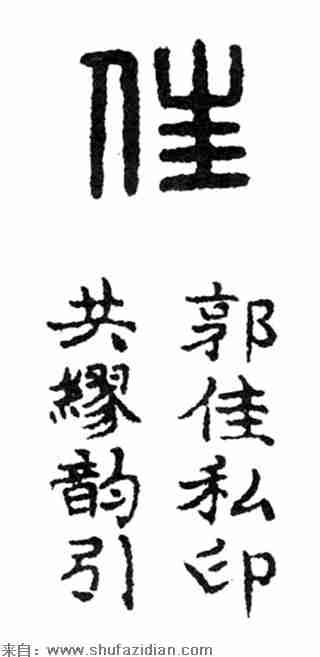 佳
郭佳私印
共繆韵引
来自：www.shufazidian.com